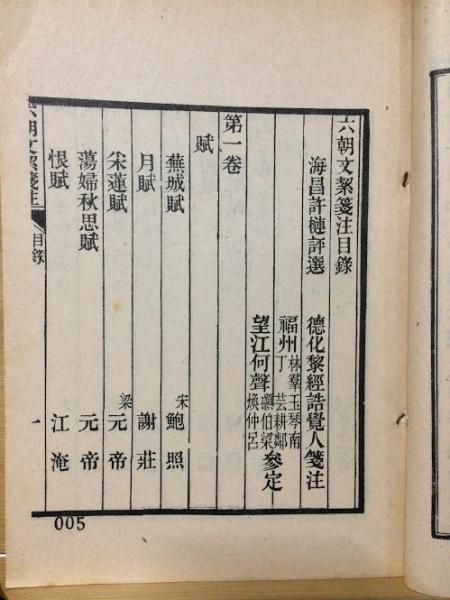 六朝文絜箋注目錄
海昌許槤評選
德化黎經誥覺人箋注
福州林羣玉琴南
丁芸耕鄰
望江何聲灝伯梁
煥仲呂
參定
第一卷
賦
蕪城賦 宋鮑照
月賦 謝莊
采蓮賦 梁元帝
蕩婦秋思賦 元帝
恨賦 江淹
六朝文絜箋注 目錄 一
005